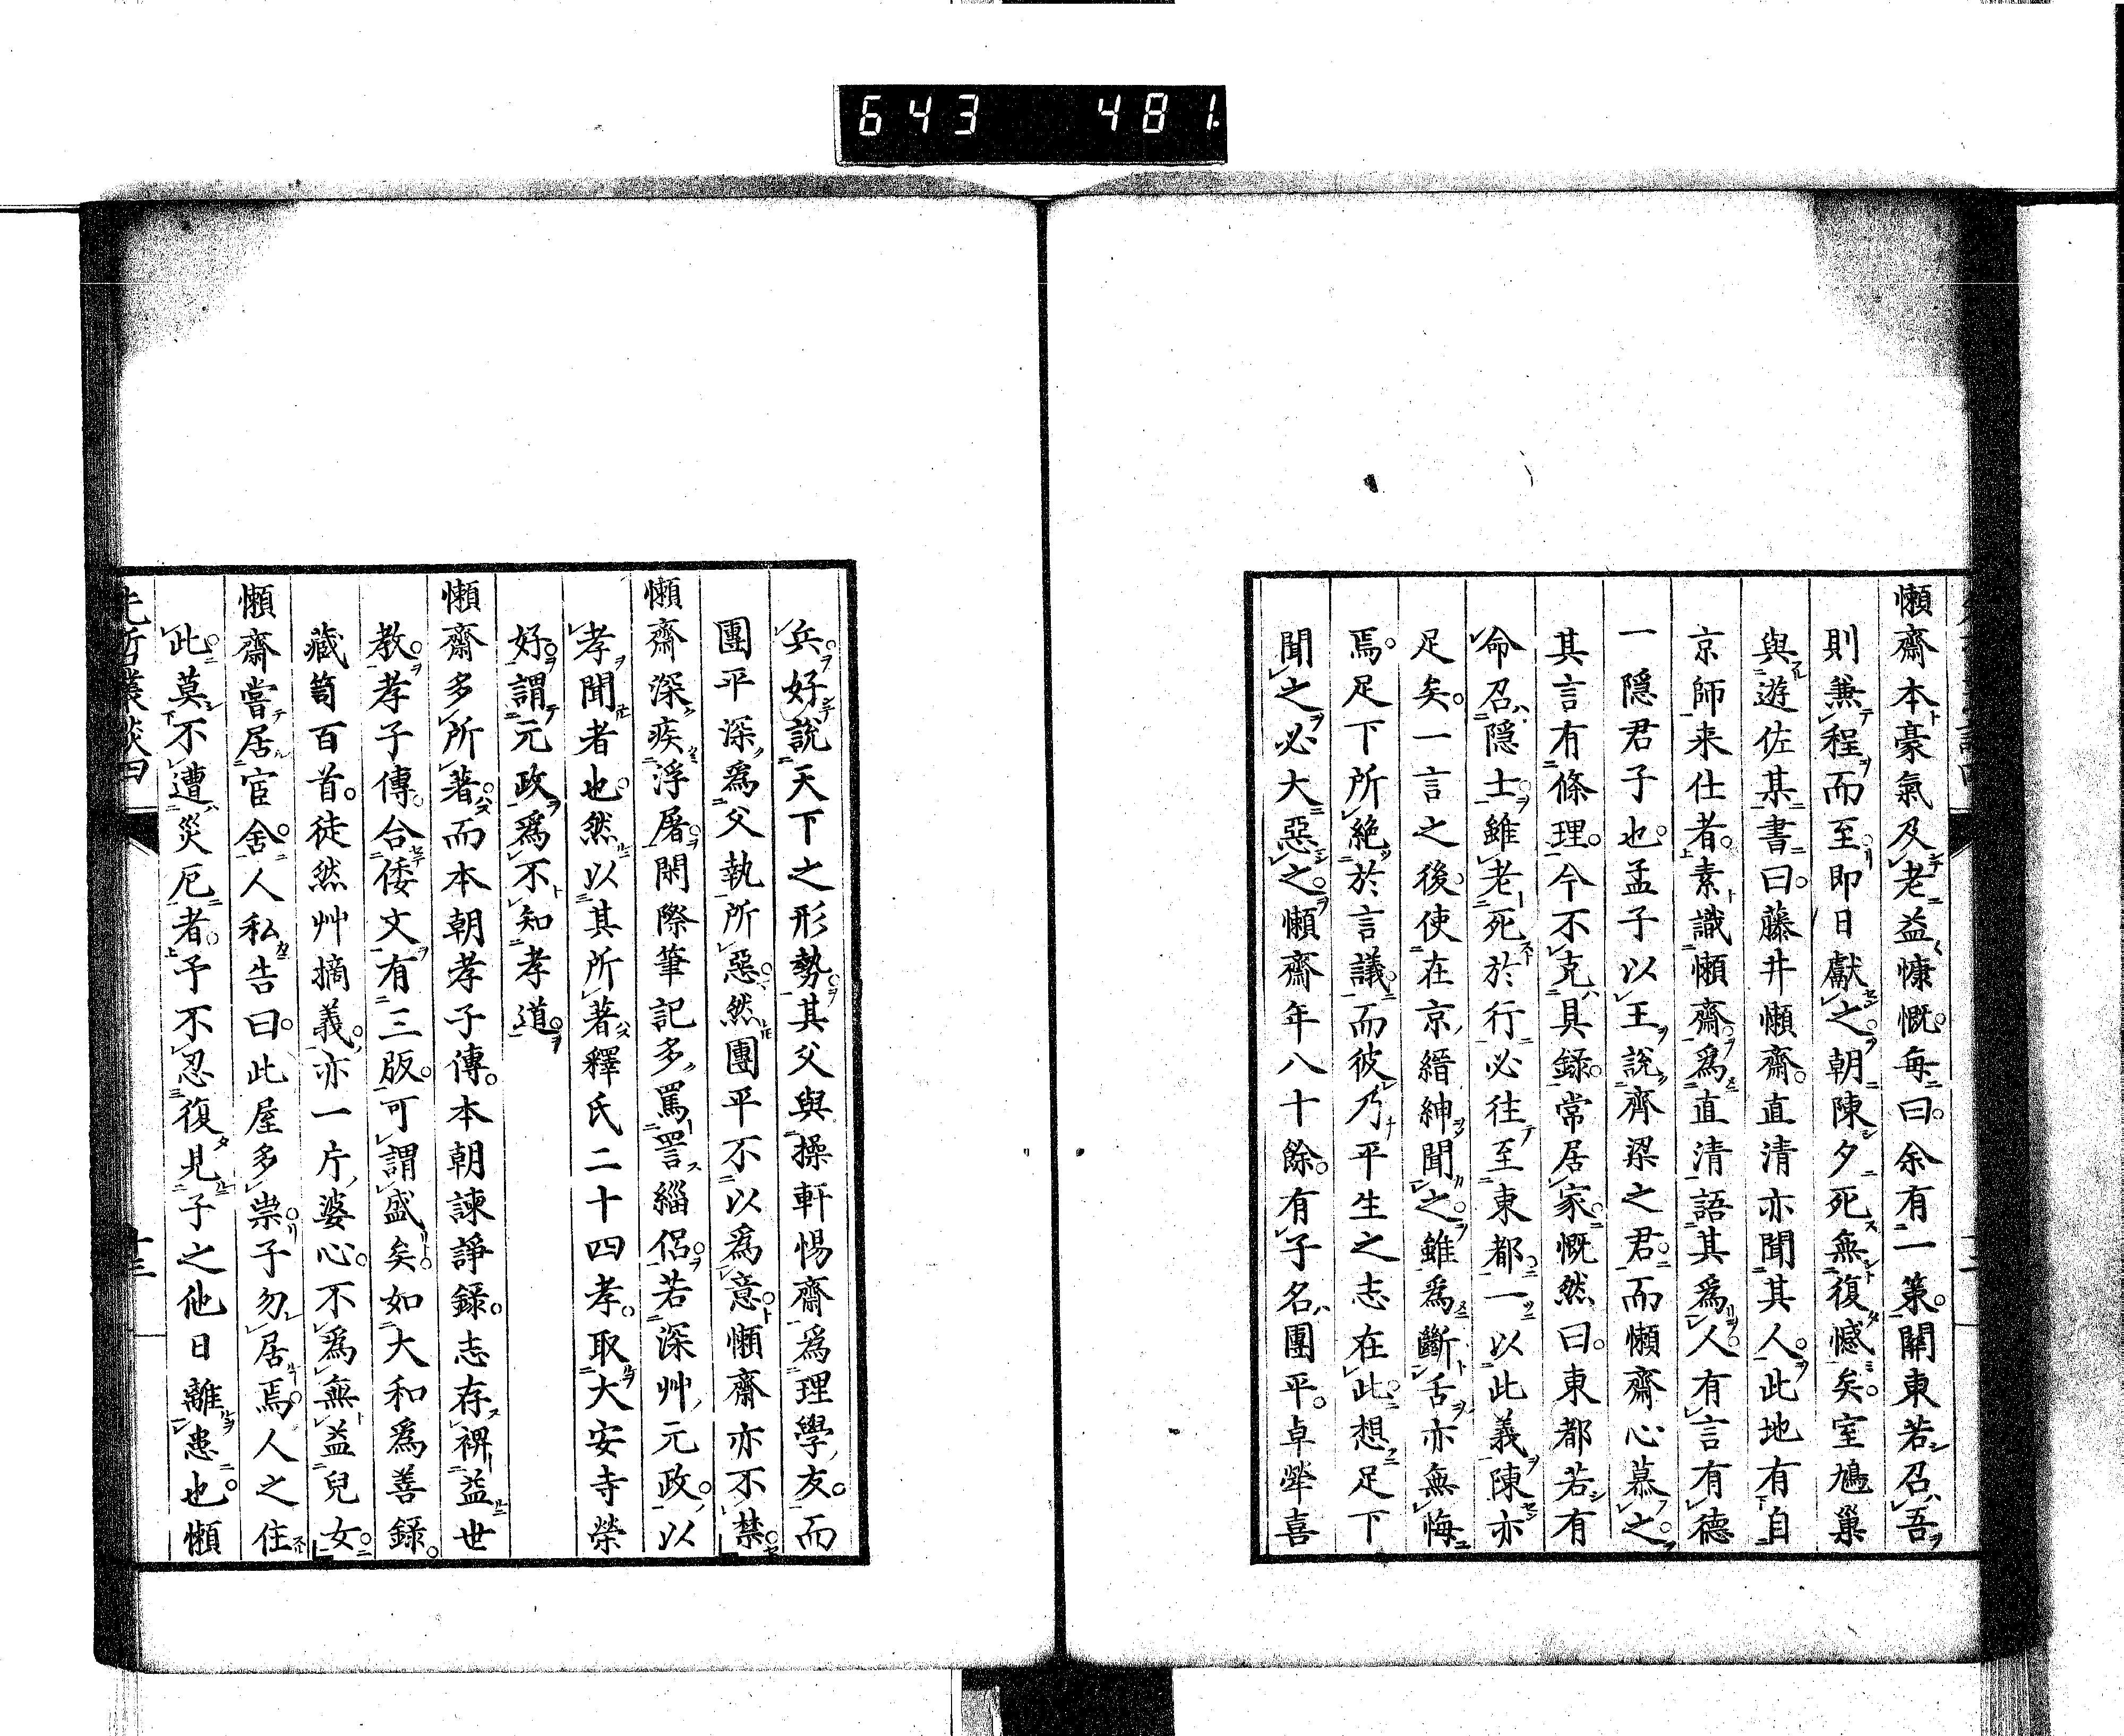 643 481
懶齋本豪氣及老益慷慨每曰余有一策關東若召吾
則兼程而至即日獻之朝陳夕死無復憾矣室鳩巢
與遊佐某書曰藤井懶齋直清亦聞其人此地有自
京師来仕者素識懶齋爲直清語其爲人有言有德
一隱君子也孟子以王說齊梁之君而懶齋心慕之
其言有條理今不克具録常居家慨然曰東都若有
命召隱士雖老死於行必往至東都一以此義陳亦
足矣一言之後使在京縉紳聞之雖爲斷舌亦無悔
焉足下所絶於言議而彼乃平生之志在此想足下
聞之必大惡之懶齋年八十餘有子名團平卓犖喜
兵好說天下之形勢其父與操軒惕齋爲理學友而
團平深爲父執所惡然團平不以爲意懶齋亦不禁
懶齋深疾浮屠閑際筆記多罵詈緇侶若深艸元政以
孝聞者也然以其所著釋氏二十四孝取大安寺榮
好謂元政爲不知孝道
懶齋多所著而本朝孝子傳本朝諫諍録志存裨益世
教孝子傳合倭文有三版可謂盛矣如大和爲善録
藏笥百首徒然艸摘義亦一片婆心不爲無益兒女
懶齋嘗居宦舍人私告曰此屋多祟子勿居焉人之住
此莫不遭災厄者予不忍復見子之他日離患也懶
先哲叢談四 十三